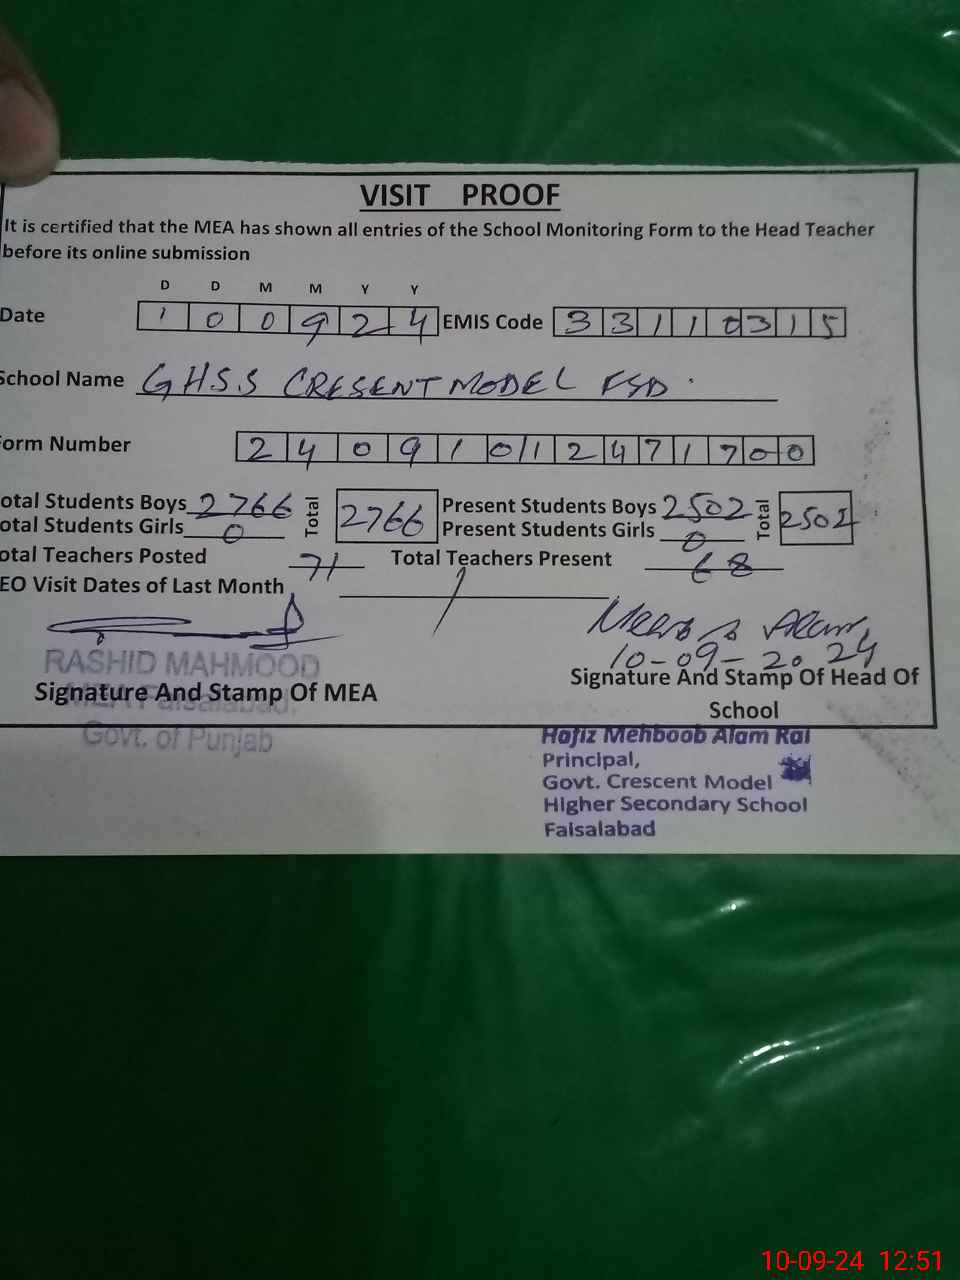 VISIT PROOF
It is certified that the MEA has shown all entries of the School Monitoring Form to the Head Teacher
before its online submission
D D M M Y Y
Date 1 0 0 9 2 4 EMIS Code 3 3 1 1 0 3 1 5
School Name G.H.S.S CRESENT MODEL FSD.
orm Number 2 4 0 9 1 0 1 2 4 7 1 7 0 0
otal Students Boys 2766 Total 2766 Present Students Boys 2502 Total 2502
otal Students Girls 0 Present Students Girls 0
otal Teachers Posted 71 Total Teachers Present 68
EO Visit Dates of Last Month
10-09-2024
RASHID MAHMOOD
Signature And Stamp Of MEA
Signature And Stamp Of Head Of
School
MEA Faisalabad.
Govt. of Punjab
Hafiz Mehboob Alam Rai
Principal,
Govt. Crescent Model
Higher Secondary School
Faisalabad
10-09-24 12:51